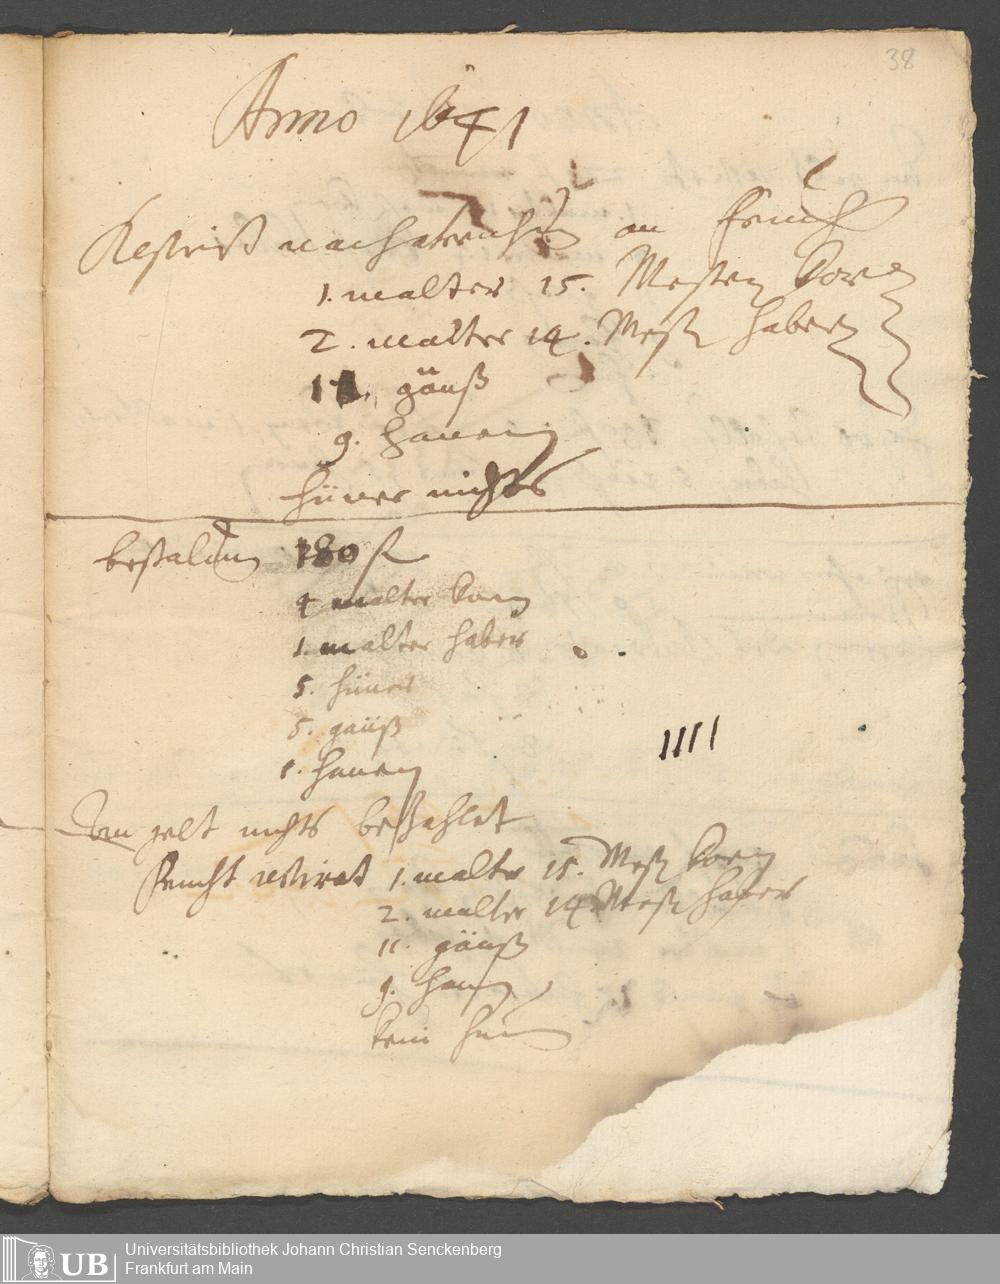 38
Anno 1641
Restirt nach an frucht
1. malter 15. Mesten korn
2. malter 14. Mest habern
11. gänß
9. hanen
hüner nichts
bestalung 180 fl
4 malter korn
1. malter haber
5. hüner
5. gänß
1. hanen
An gelt nichts bezahlet
frucht restirat 1. malter 15. Mest korn
2. malter 14 Mest haber
11. gänß
9. hanen
kein hun
UB
Universitätsbibliothek Johann Christian Senckenberg
Frankfurt am Main